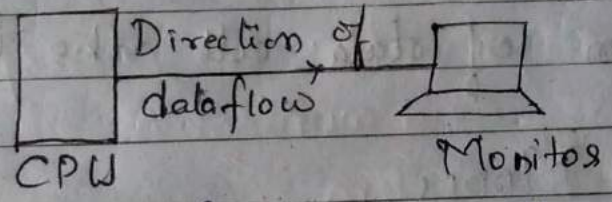 Direction of
dataflow
CPU
Monitor